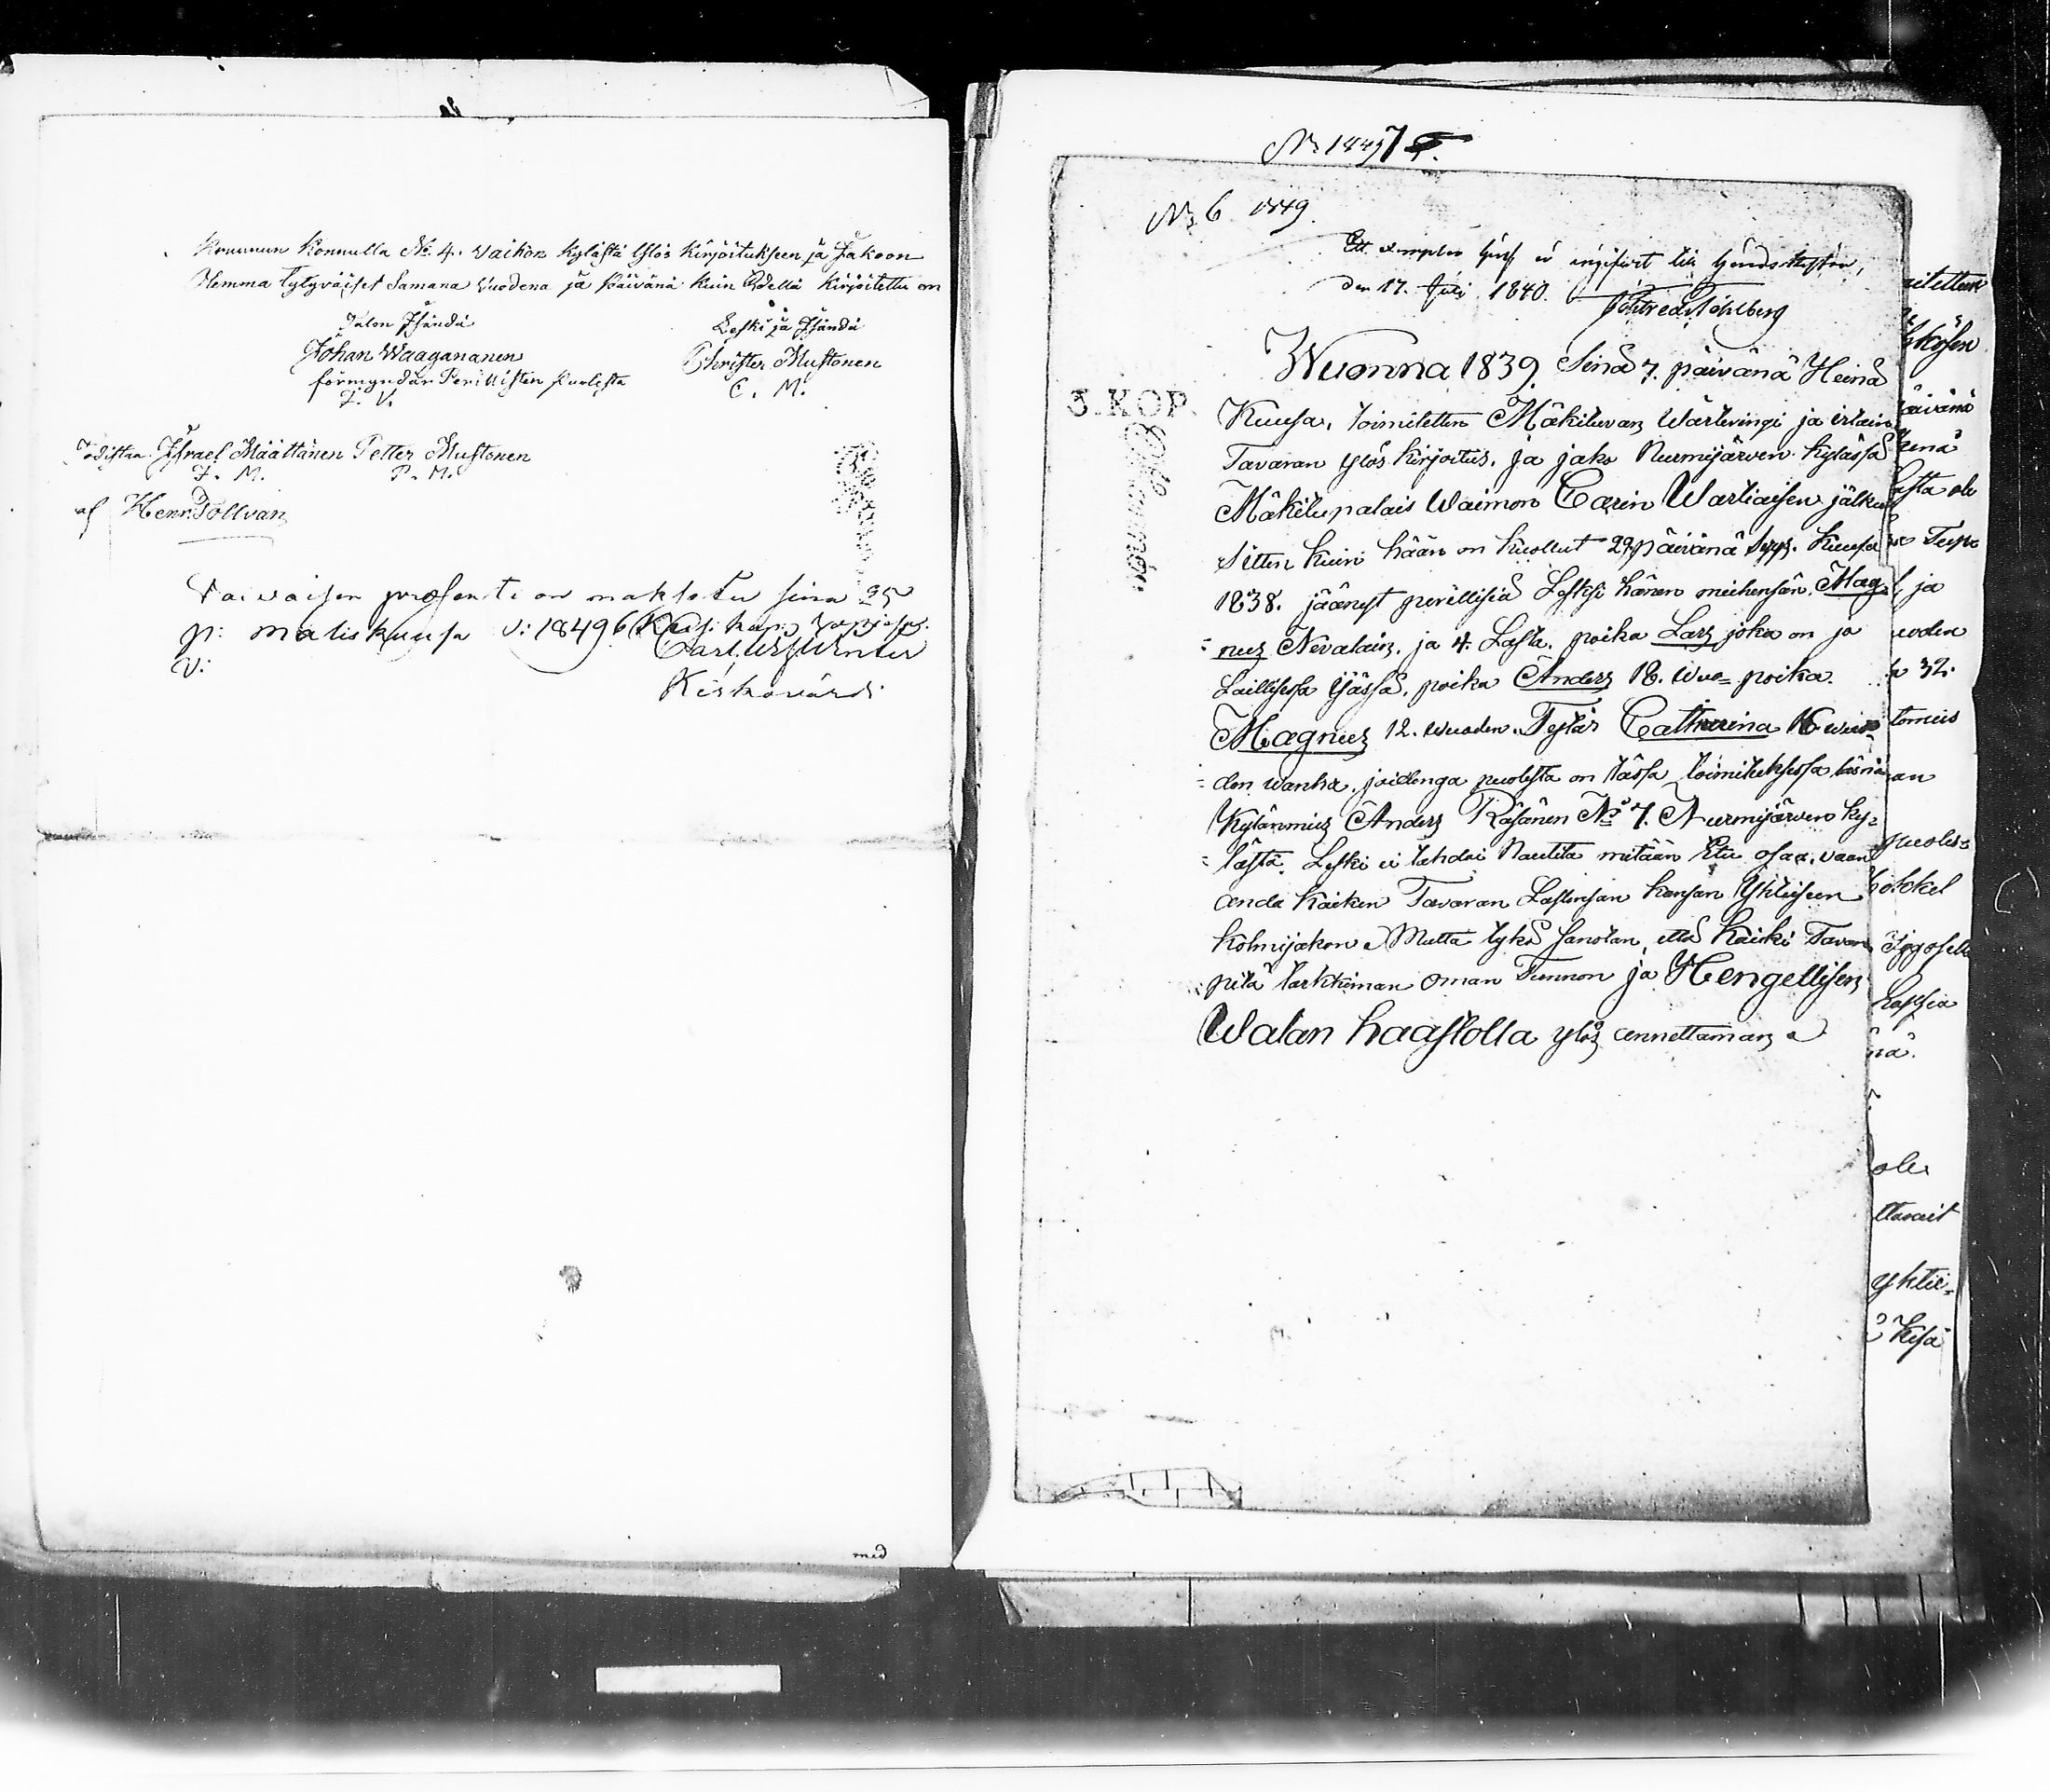 Kruunun Konnulla No 4. Vaikon Kylästä Ylös Kirjoitukseen ja Jakoon
Olemma tytyväiset Samana Vuodena ja Päivänä kuin Edellä kirjoitettu on
Talon Isändä
Leski ja Isändä
Johan Waagananen
Christer Mustonen
förmyndär Perillisten Puolesta
J. V.
C. M.
Todistaa Israel Määttänen Petter Mustonen
I. M. P. M.
af Henr. Tollvan
Vaivaisen prosenti on maksetu sina 25
p: maliskuusa v: 1849 6 Kop:
V: Carl
Kirkovärdi
med
No 1449
No 6 1849
Ett exemplar häraf är ingifvit till Häradsrätten,
den 17. Juli 1840.
Wuonna 1839. Sinä 7. päivänä Heinä
3. KOP.
Kuusa, toimitettin Mäkituvan Wärderingi ja irtain
Tavaran ylös kirjoitus. ja jako Nurmijärven kylässä
Mäkitupalais Waimon Carin Wartiaisen jälken
sitten kuin hään on kuollut 29 päivänä Syys. Kuusa
1838. jäänyt perillisiä Leskesi hänen miehensän Mag
=nus Nevalain, ja 4. Lasta. poika Lars joka on jo
Laillisesa ijässä. poika Anders 18. Wuo= poika.
Magnus 12. wuoden. Tytär Catharina 16 wuo=
=den wanha. joidenga puolesta on tässä toimituksessa läsnä
Kylänmies Anders Räsänen No 7. Nurmijärven ky=
=lästä. Leski ei tahdoi Nautita mitään Etu osaa, vaan
anda kaiken Tavaran Lastensan kansan Yhteiseen
kolmijakon. Mutta tykö sanotan, että kaicki Tavara
pitä tarkkiman oman Tunnon ja Hengellisen
Walan haastolla ylös annettaman
päivänä
ja
vuoden
32.
puoles=
hapsia
ole
yhtei=